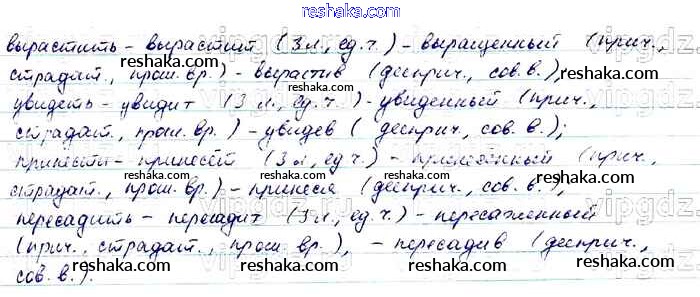 reshaka.com
вырастить – вырастит (3 л., ед. ч.) – выращенный (прич.,
страдат., прош. вр.) – вырастив (дееприч., сов. в.),
увидеть – увидит (3 л., ед. ч.) – увиденный (прич.,
страдат., прош. вр.) – увидев (дееприч., сов. в.);
принести – принесёт (3 л., ед ч.) – принесённый (прич.,
страдат., прош. вр.) – принеся (дееприч., сов. в.),
пересадить – пересадит (3 л., ед. ч.) – пересаженный
(прич., страдат., прош. вр.), – пересадив (дееприч.,
сов. в.).
reshaka.com reshaka.com reshaka.com
reshaka.com reshaka.com reshaka.com
reshaka.com reshaka.com reshaka.com
reshaka.com reshaka.com reshaka.com